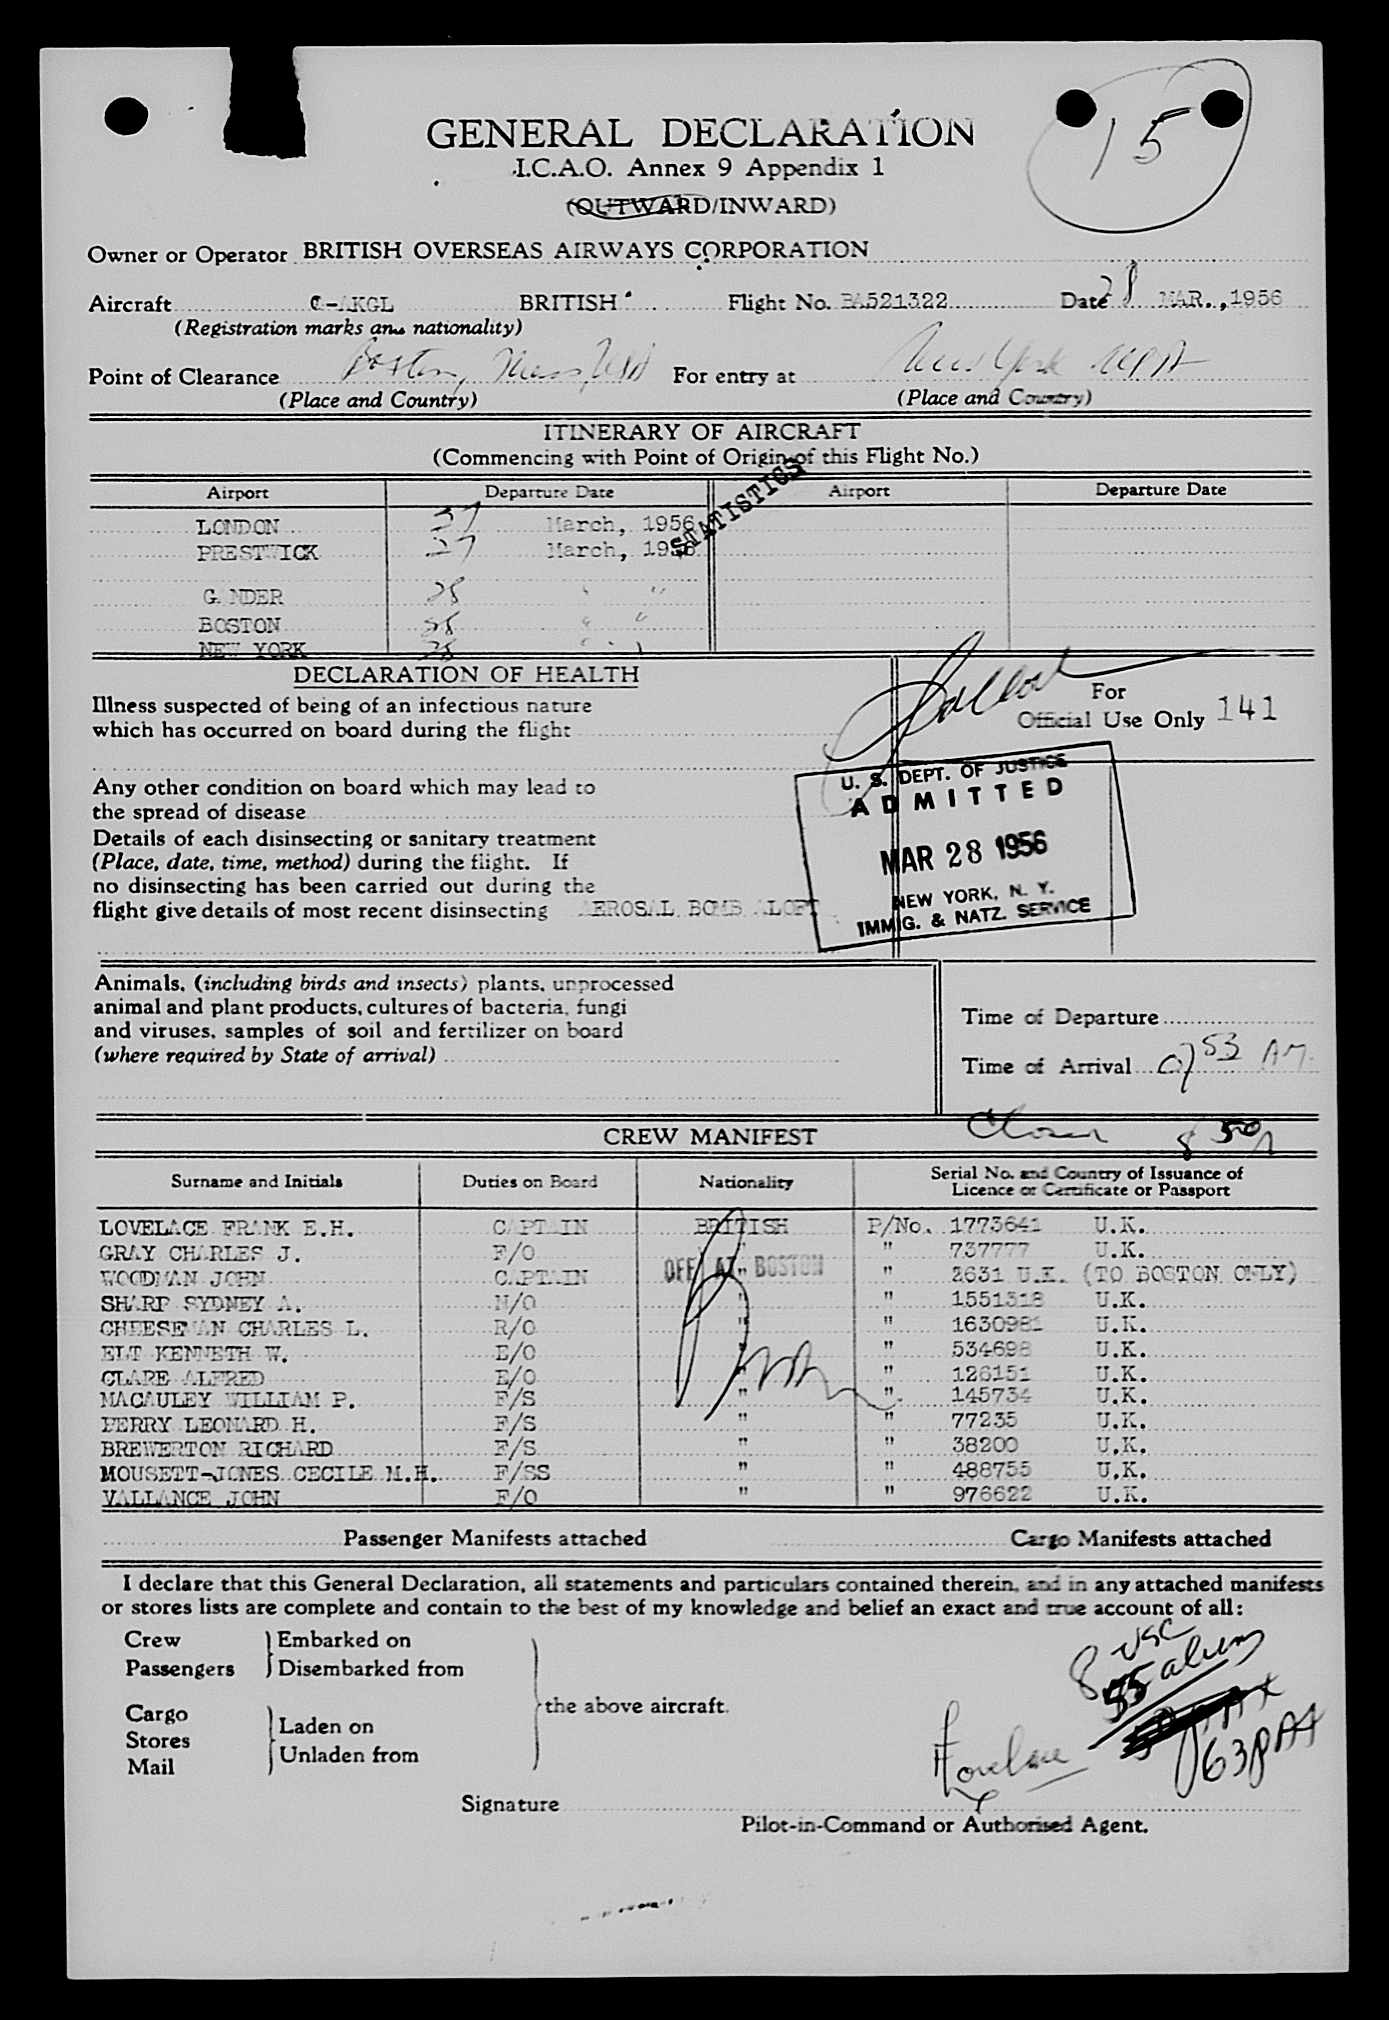 15
GENERAL DECLARATION
I.C.A.O. Annex 9 Appendix 1
(OUTWARD/INWARD)
Owner or Operator BRITISH OVERSEAS AIRWAYS CORPORATION
Aircraft G-AKGL BRITISH Flight No. BA521322 Date 28 MAR., 1956
(Registration marks and nationality)
Point of Clearance Boston, Mass, USA For entry at New York USA
(Place and Country) (Place and Country)
ITINERARY OF AIRCRAFT
(Commencing with Point of Origin of this Flight No.)
Airport Departure Date Airport Departure Date
STATISTICS
LONDON 27 March, 1956
PRESTWICK 27 March, 1956
GANDER 28 " "
BOSTON 28 " "
NEW YORK 28 " "
DECLARATION OF HEALTH
Illness suspected of being of an infectious nature
which has occurred on board during the flight
For
Official Use Only 141
Any other condition on board which may lead to
the spread of disease
Details of each disinsecting or sanitary treatment
(Place, date, time, method) during the flight. If
no disinsecting has been carried out during the
flight give details of most recent disinsecting AEROSAL BOMB ALOFT
U. S. DEPT. OF JUSTICE
ADMITTED
MAR 28 1956
NEW YORK, N. Y.
IMMIG. & NATZ. SERVICE
Animals, (including birds and insects) plants, unprocessed
animal and plant products, cultures of bacteria, fungi
and viruses, samples of soil and fertilizer on board
(where required by State of arrival)
Time of Departure
Time of Arrival 0753 AM.
CREW MANIFEST
Surname and Initials Duties on Board Nationality Serial No. and Country of Issuance of
Licence or Certificate or Passport
LOVELACE FRANK E.H. CAPTAIN BRITISH P/No. 1773641 U.K.
GRAY CHARLES J. F/O " " 737777 U.K.
WOODMAN JOHN CAPTAIN OFF AT BOSTON " " 2631 U.K. (TO BOSTON ONLY)
SHARP SYDNEY A. N/O " " 1551318 U.K.
CHEESEMAN CHARLES L. R/O " " 1630981 U.K.
ELT KENNETH W. E/O " " 534698 U.K.
CLARE ALFRED E/O " " 126151 U.K.
MACAULEY WILLIAM P. F/S " " 145734 U.K.
PERRY LEONARD H. F/S " " 77235 U.K.
BREWERTON RICHARD F/S " " 38200 U.K.
MOUSETT-JONES CECILE M.H. F/SS " " 488755 U.K.
VALLANCE JOHN F/O " " 976622 U.K.
Passenger Manifests attached Cargo Manifests attached
I declare that this General Declaration, all statements and particulars contained therein, and in any attached manifests
or stores lists are complete and contain to the best of my knowledge and belief an exact and true account of all:
Crew Embarked on
Passengers Disembarked from
Cargo
Stores
Mail
Laden on
Unladen from
the above aircraft.
8 USC
55 aliens
63
Lovelace
Signature
Pilot-in-Command or Authorised Agent.